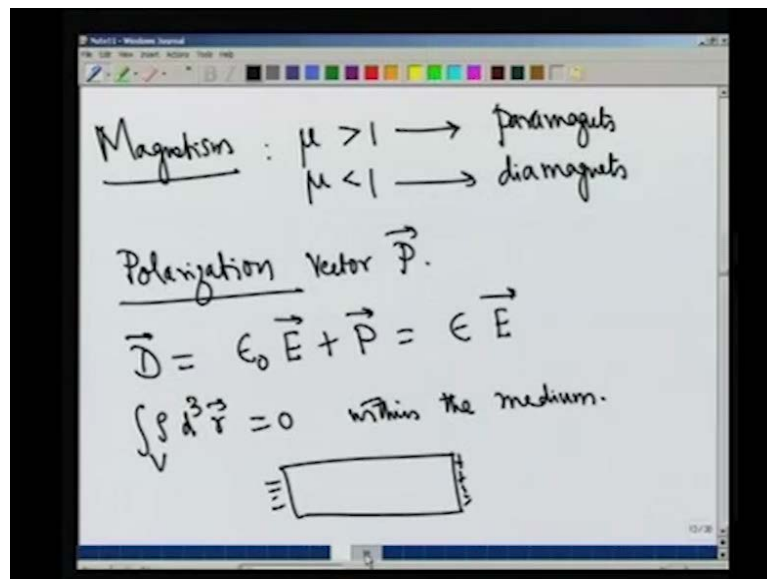 Note11 - Windows Journal
File Edit View Insert Actions Tools Help
Magnetism : μ > 1 → paramagnets
μ < 1 → diamagnets
Polarization Vector P⃗.
D⃗ = ϵ₀ E⃗ + P⃗ = ϵ E⃗
∫_V ρ d³r⃗ = 0 within the medium.